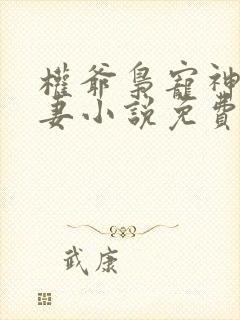 權爺梟寵神
妻小說免費
武康